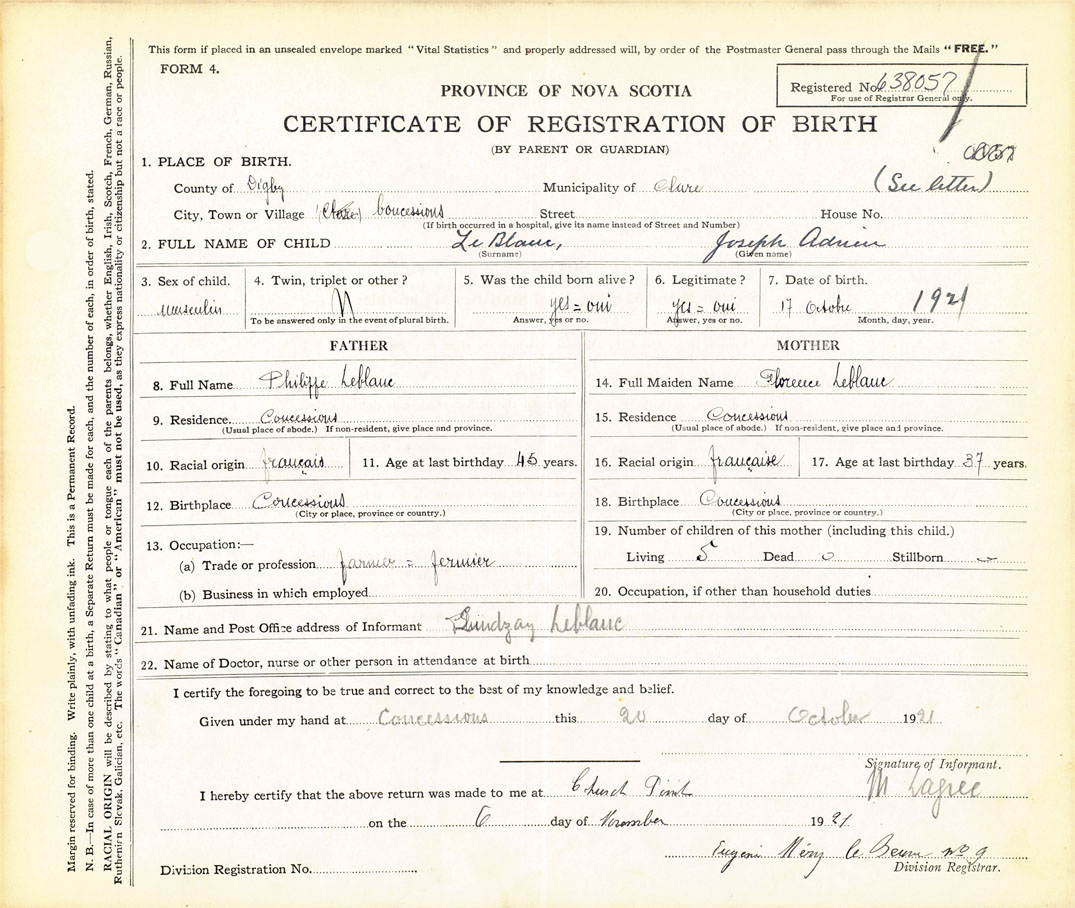 This form if placed in an unsealed envelope marked "Vital Statistics" and properly addressed will, by order of the Postmaster General pass through the Mails "FREE."
FORM 4.
Registered No. 638057
For use of Registrar General only.
PROVINCE OF NOVA SCOTIA
CERTIFICATE OF REGISTRATION OF BIRTH
(BY PARENT OR GUARDIAN)
1. PLACE OF BIRTH.
County of Digby Municipality of Clare (See letter)
City, Town or Village (Clare) Concessions Street House No.
(If birth occurred in a hospital, give its name instead of Street and Number)
2. FULL NAME OF CHILD Le Blanc, Joseph Adrien
(Surname) (Given name)
3. Sex of child. 4. Twin, triplet or other? 5. Was the child born alive? 6. Legitimate? 7. Date of birth.
masculin N yes = oui yes = oui 17 Octobre 1921
To be answered only in the event of plural birth. Answer, yes or no. Answer, yes or no. Month, day, year.
FATHER MOTHER
8. Full Name Philippe Leblanc 14. Full Maiden Name Florence Leblanc
9. Residence. Concessions 15. Residence Concessions
(Usual place of abode.) If non-resident, give place and province. (Usual place of abode.) If non-resident, give place and province.
10. Racial origin français 11. Age at last birthday 45 years. 16. Racial origin française 17. Age at last birthday 37 years.
12. Birthplace Concessions 18. Birthplace Concessions
(City or place, province or country.) (City or place, province or country.)
19. Number of children of this mother (including this child.)
13. Occupation:—
Living 5 Dead 0 Stillborn –
(a) Trade or profession farmer = fermier
(b) Business in which employed 20. Occupation, if other than household duties
21. Name and Post Office address of Informant Lindzay Leblanc
22. Name of Doctor, nurse or other person in attendance at birth
I certify the foregoing to be true and correct to the best of my knowledge and belief.
Given under my hand at Concessions this 20 day of October 1921
Signature of Informant.
M Lagrée
I hereby certify that the above return was made to me at Church Point
on the 6 day of November 1921
Division Registrar.
Division Registration No.
Margin reserved for binding. Write plainly, with unfading ink. This is a Permanent Record.
N. B.—In case of more than one child at a birth, a Separate Return must be made for each, and the number of each, in order of birth, stated.
RACIAL ORIGIN will be described by stating to what people or tongue each of the parents belongs, whether English, Irish, Scotch, French, German, Russian,
Ruthenian Slovak, Galician, etc. The words "Canadian" or "American" must not be used, as they express nationality or citizenship but not a race or people.